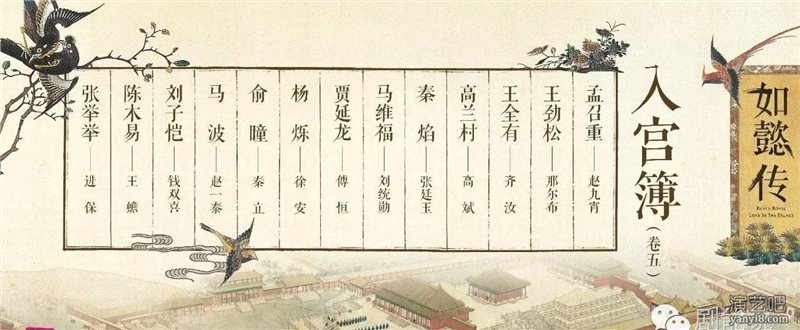 如懿传
RUYI'S ROYAL
LOVE IN THE PALACE
入宫簿(卷五)
孟召重——赵九宵
王劲松——那尔布
王全有——齐汝
高兰村——高斌
秦焰——张廷玉
马维福——刘统勋
贾延龙——傅恒
杨烁——徐安
俞瞳——秦立
马波——赵一泰
刘子恺——钱双喜
陈木易——王蟾
张举举 进保
演艺吧
yanyi8.com